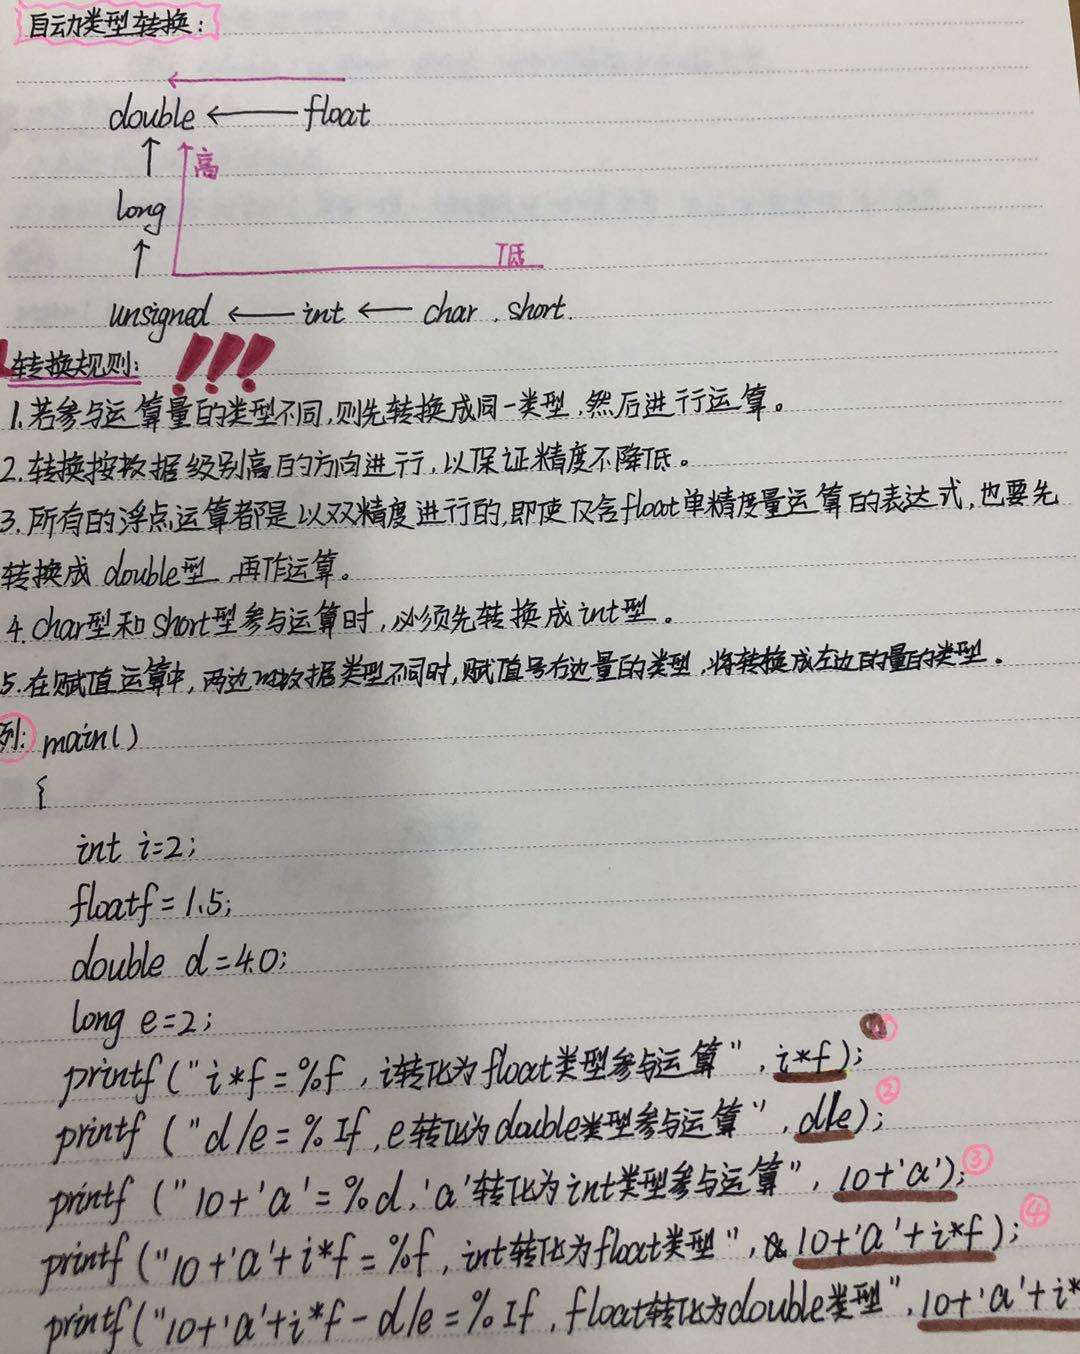 自动类型转换:
double ← float
高
long
低
unsigned ← int ← char . short.
转换规则: !!!
1.若参与运算量的类型不同,则先转换成同一类型,然后进行运算。
2.转换按数据级别高的方向进行,以保证精度不降低。
3.所有的浮点运算都是以双精度进行的,即使仅含float单精度量运算的表达式,也要先
转换成double型,再作运算。
4.char型和short型参与运算时,必须先转换成int型。
5.在赋值运算中,两边的数据类型不同时,赋值号右边量的类型,将转换成左边的量的类型.
列: main()
{
int i=2;
floatf=1.5;
double d=4.0;
long e=2;
printf("i*f=%f,i转化为float类型参与运算",i*f); ①
printf("d/e=%If,e转化为double类型参与运算",d/e); ②
printf("10+'a'=%d,'a'转化为int类型参与运算",10+'a'); ③
printf("10+'a'+i*f=%f,int转化为float类型",10+'a'+i*f); ④
printf("10+'a'+i*f-d/e=%If,float转化为double类型",10+'a'+i*